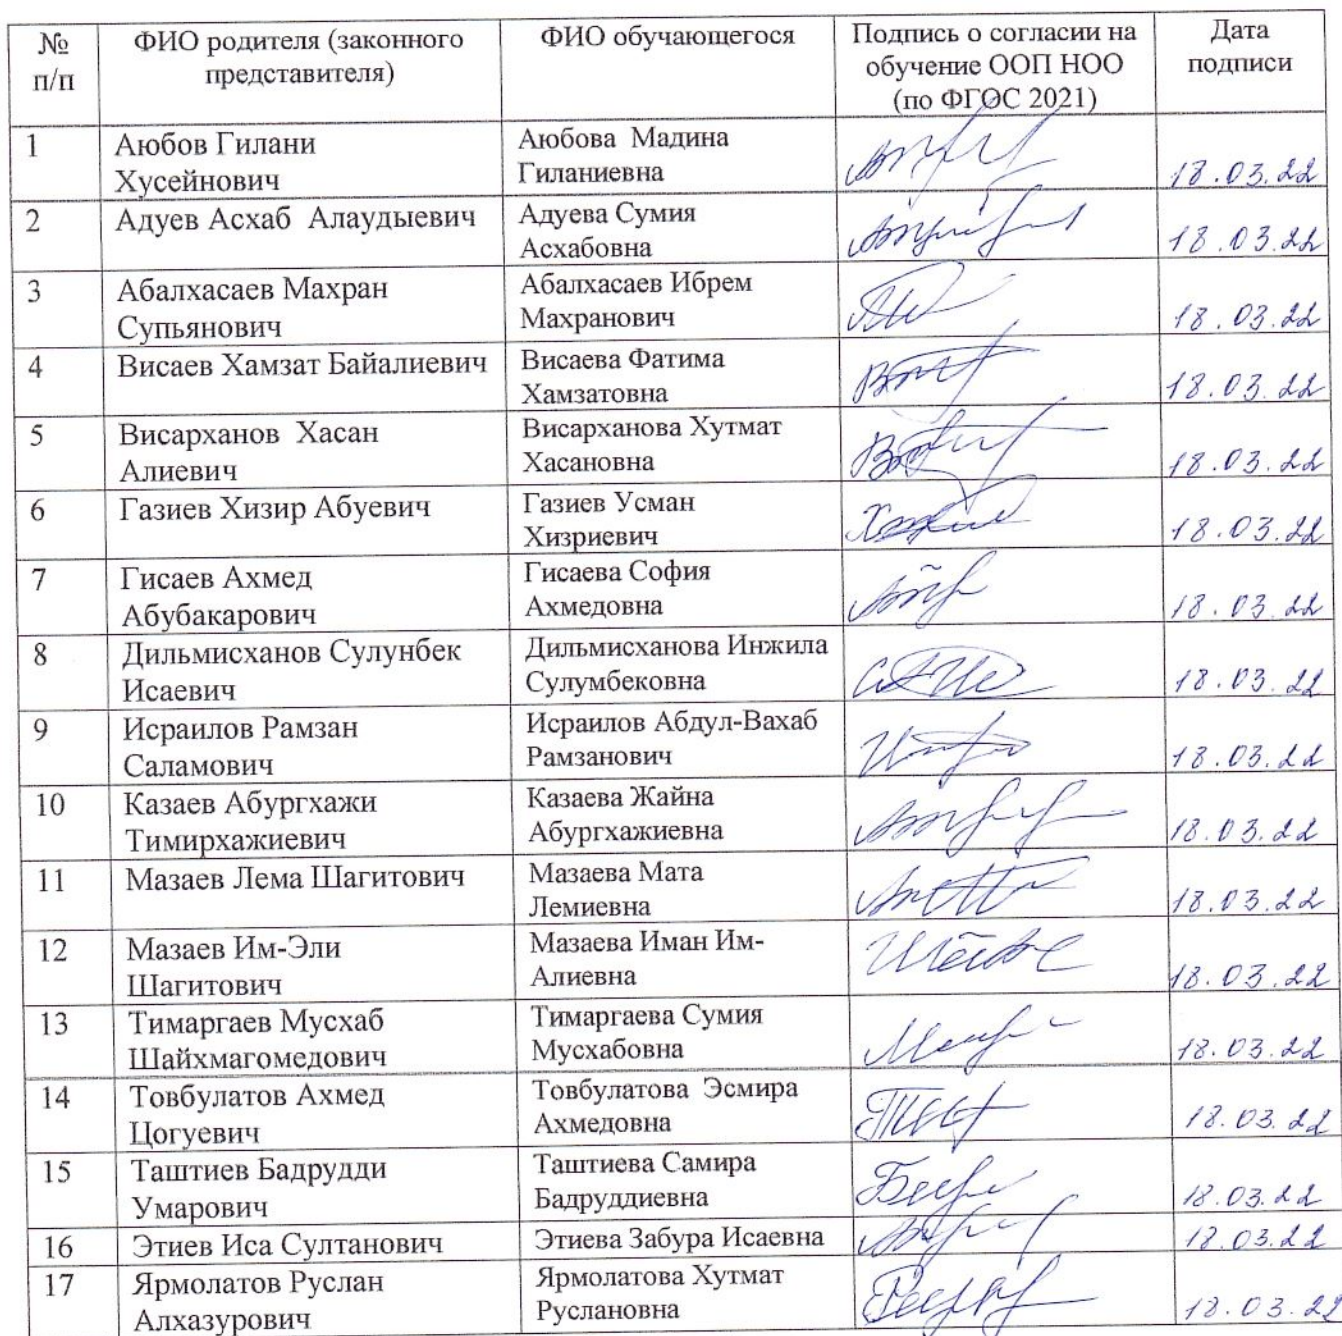 № п/п ФИО родителя (законного представителя) ФИО обучающегося Подпись о согласии на обучение ООП НОО (по ФГОС 2021) Дата подписи
1 Аюбов Гилани Хусейнович Аюбова Мадина Гиланиевна 18.03.22
2 Адуев Асхаб Алаудыевич Адуева Сумия Асхабовна 18.03.22
3 Абалхасаев Махран Супьянович Абалхасаев Ибрем Махранович 18.03.22
4 Висаев Хамзат Байалиевич Висаева Фатима Хамзатовна 18.03.22
5 Висарханов Хасан Алиевич Висарханова Хутмат Хасановна 18.03.22
6 Газиев Хизир Абуевич Газиев Усман Хизриевич 18.03.22
7 Гисаев Ахмед Абубакарович Гисаева София Ахмедовна 18.03.22
8 Дильмисханов Сулунбек Исаевич Дильмисханова Инжила Сулумбековна 18.03.22
9 Исраилов Рамзан Саламович Исраилов Абдул-Вахаб Рамзанович 18.03.22
10 Казаев Абургхажи Тимирхажиевич Казаева Жайна Абургхажиевна 18.03.22
11 Мазаев Лема Шагитович Мазаева Мата Лемиевна 18.03.22
12 Мазаев Им-Эли Шагитович Мазаева Иман Им-Алиевна 18.03.22
13 Тимаргаев Мусхаб Шайхмагомедович Тимаргаева Сумия Мусхабовна 18.03.22
14 Товбулатов Ахмед Цогуевич Товбулатова Эсмира Ахмедовна 18.03.22
15 Таштиев Бадрудди Умарович Таштиева Самира Бадруддиевна 18.03.22
16 Этиев Иса Султанович Этиева Забура Исаевна 18.03.22
17 Ярмолатов Руслан Алхазурович Ярмолатова Хутмат Руслановна 18.03.22